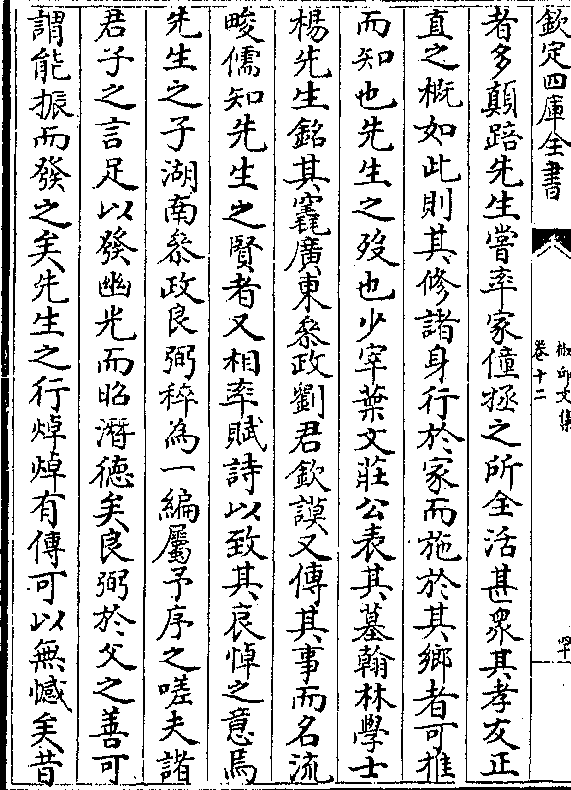 欽定四庫全書
椒邱文集
卷十二
者多顛踣先生嘗率家僮拯之所全活甚衆其孝友正
直之概如此則其修諸身行於家而施於其鄉者可推
而知也先生之歿也少宰葉文莊公表其墓翰林學士
楊先生銘其竁廣東叅政劉君欽謨又傳其事而名流
畯儒知先生之賢者又相率賦詩以致其哀悼之意焉
先生之子湖南叅政良弼稡為一編屬予序之嗟夫諸
君子之言足以發幽光而昭潛德矣良弼於父之善可
謂能振而發之矣先生之行焯焯有傳可以無憾矣昔